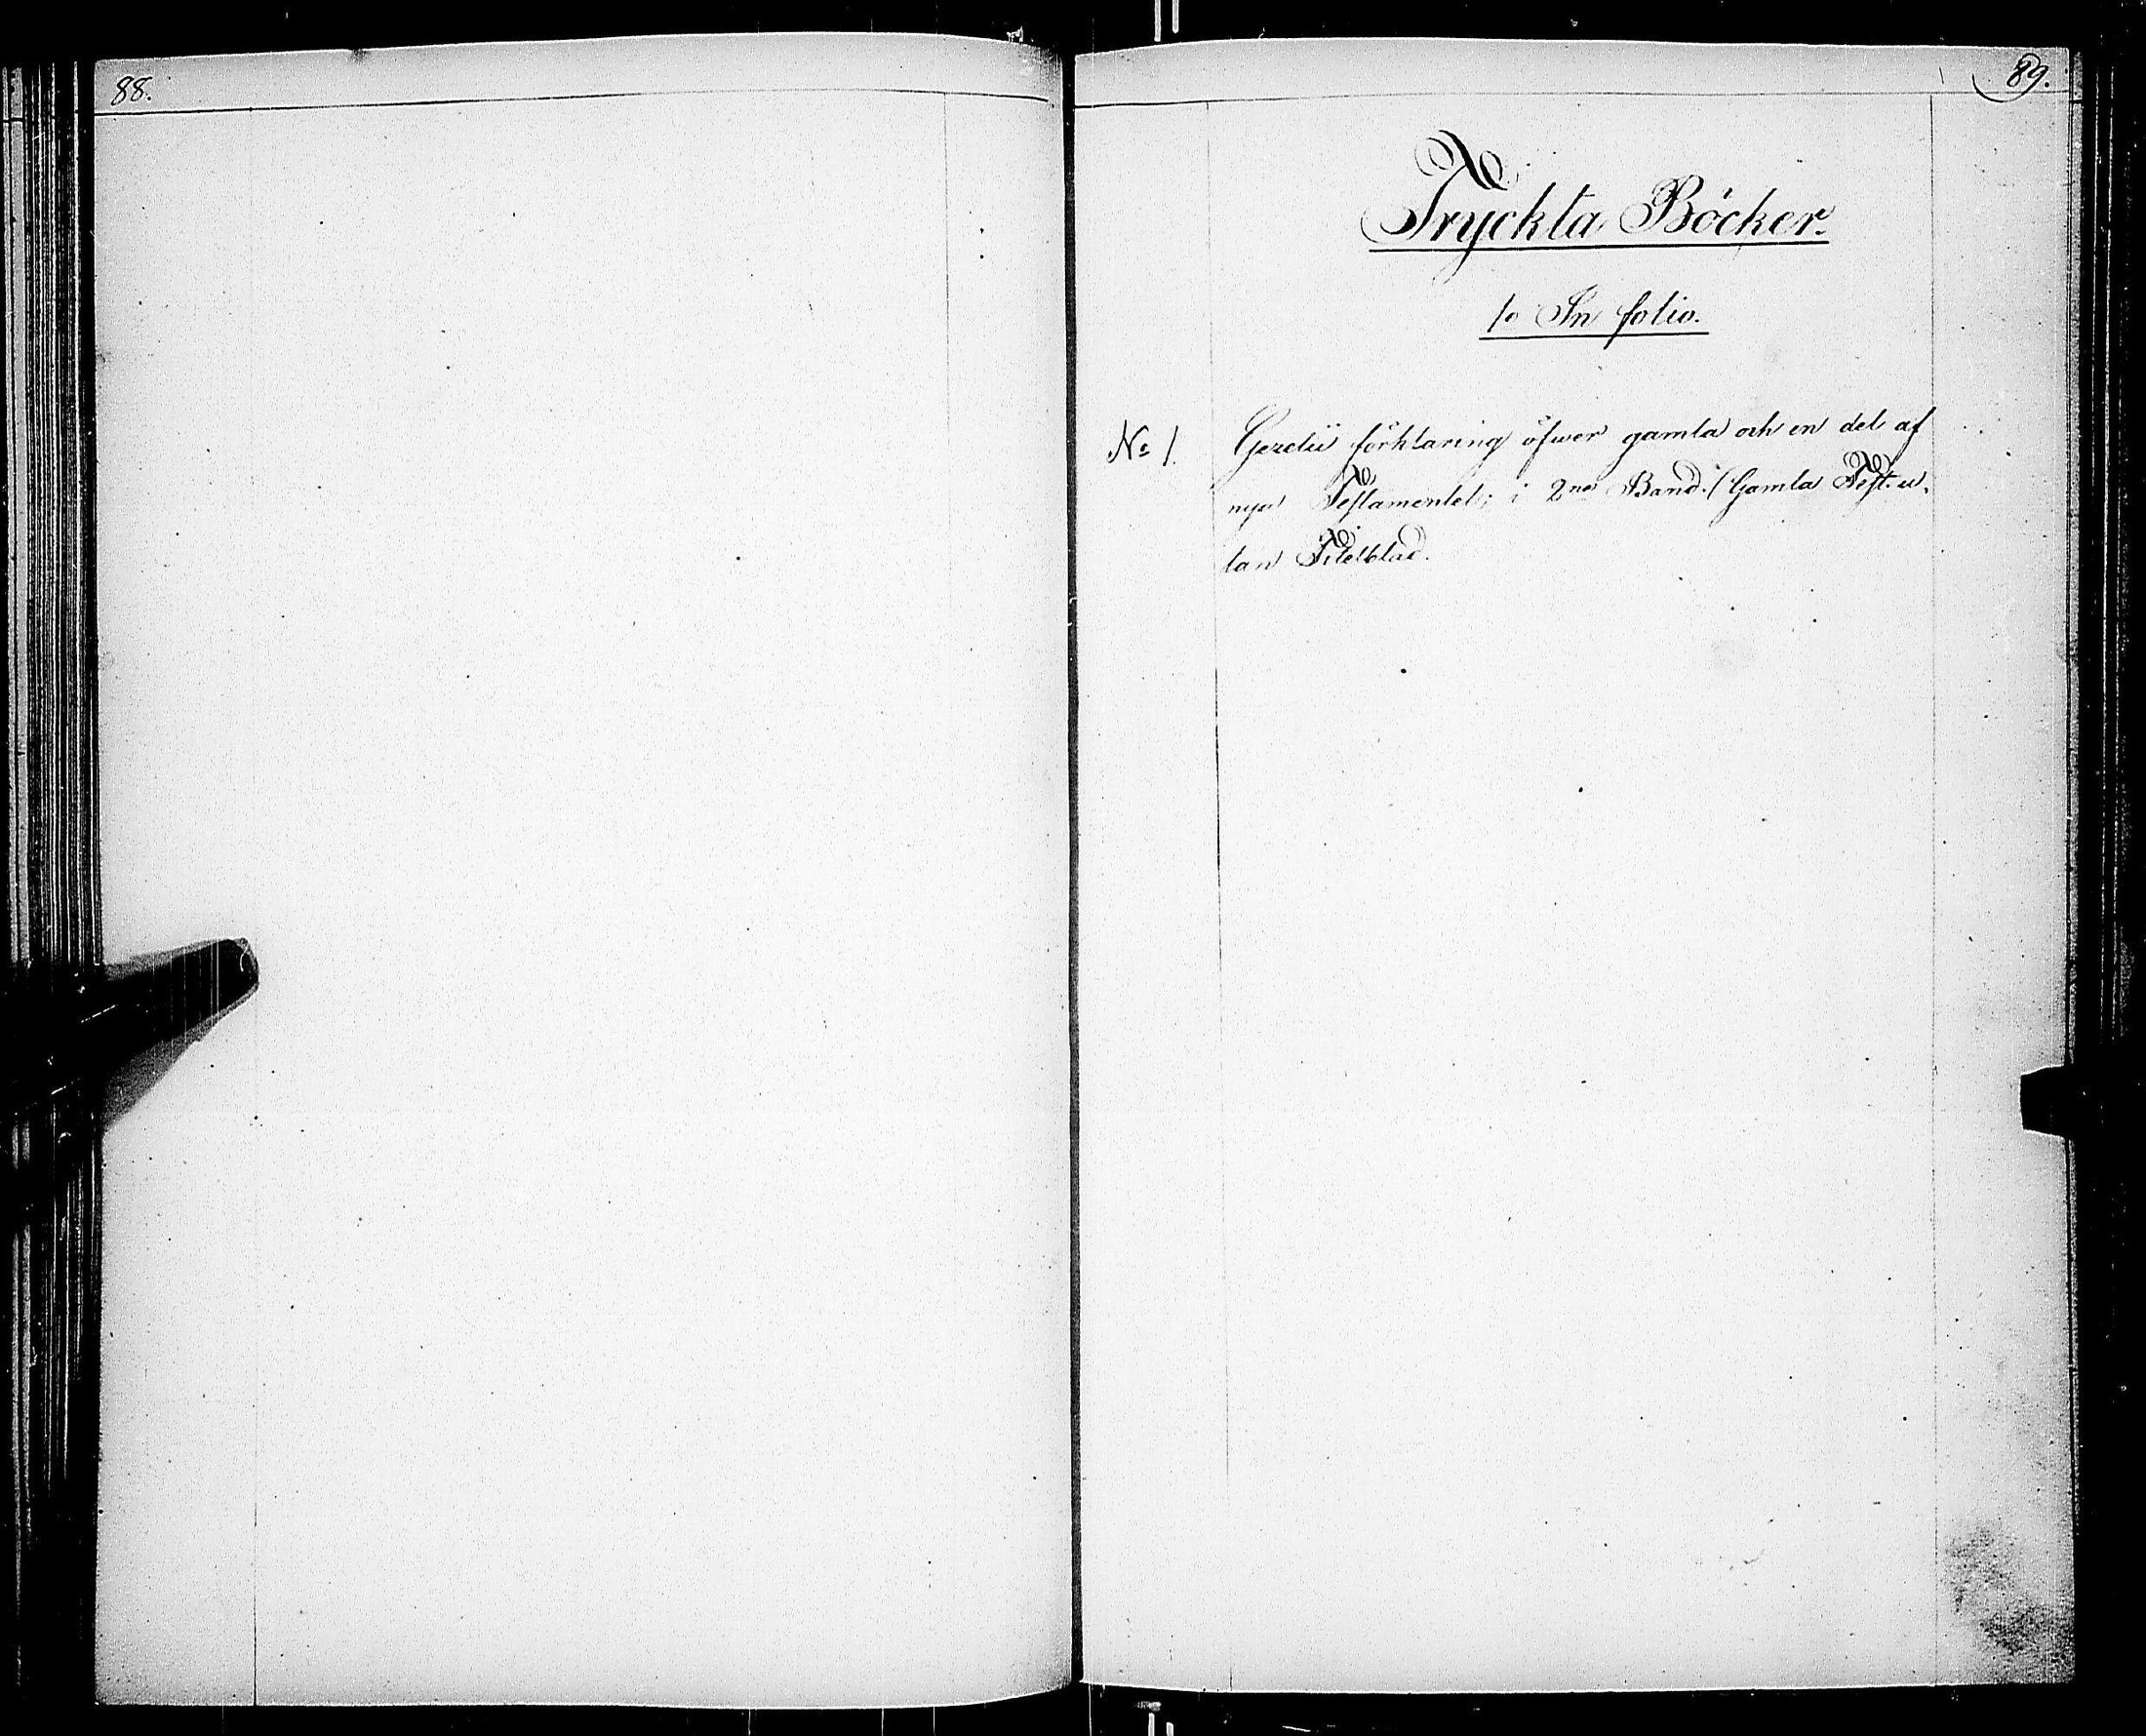 88.
89.
Tryckta Böcker.
1o In folio.
No 1. Gezelii förklaring öfwer gamla och en del af
nya Testamentet; i 2ne Band. (Gamla Test. u.
tan Titelblad.